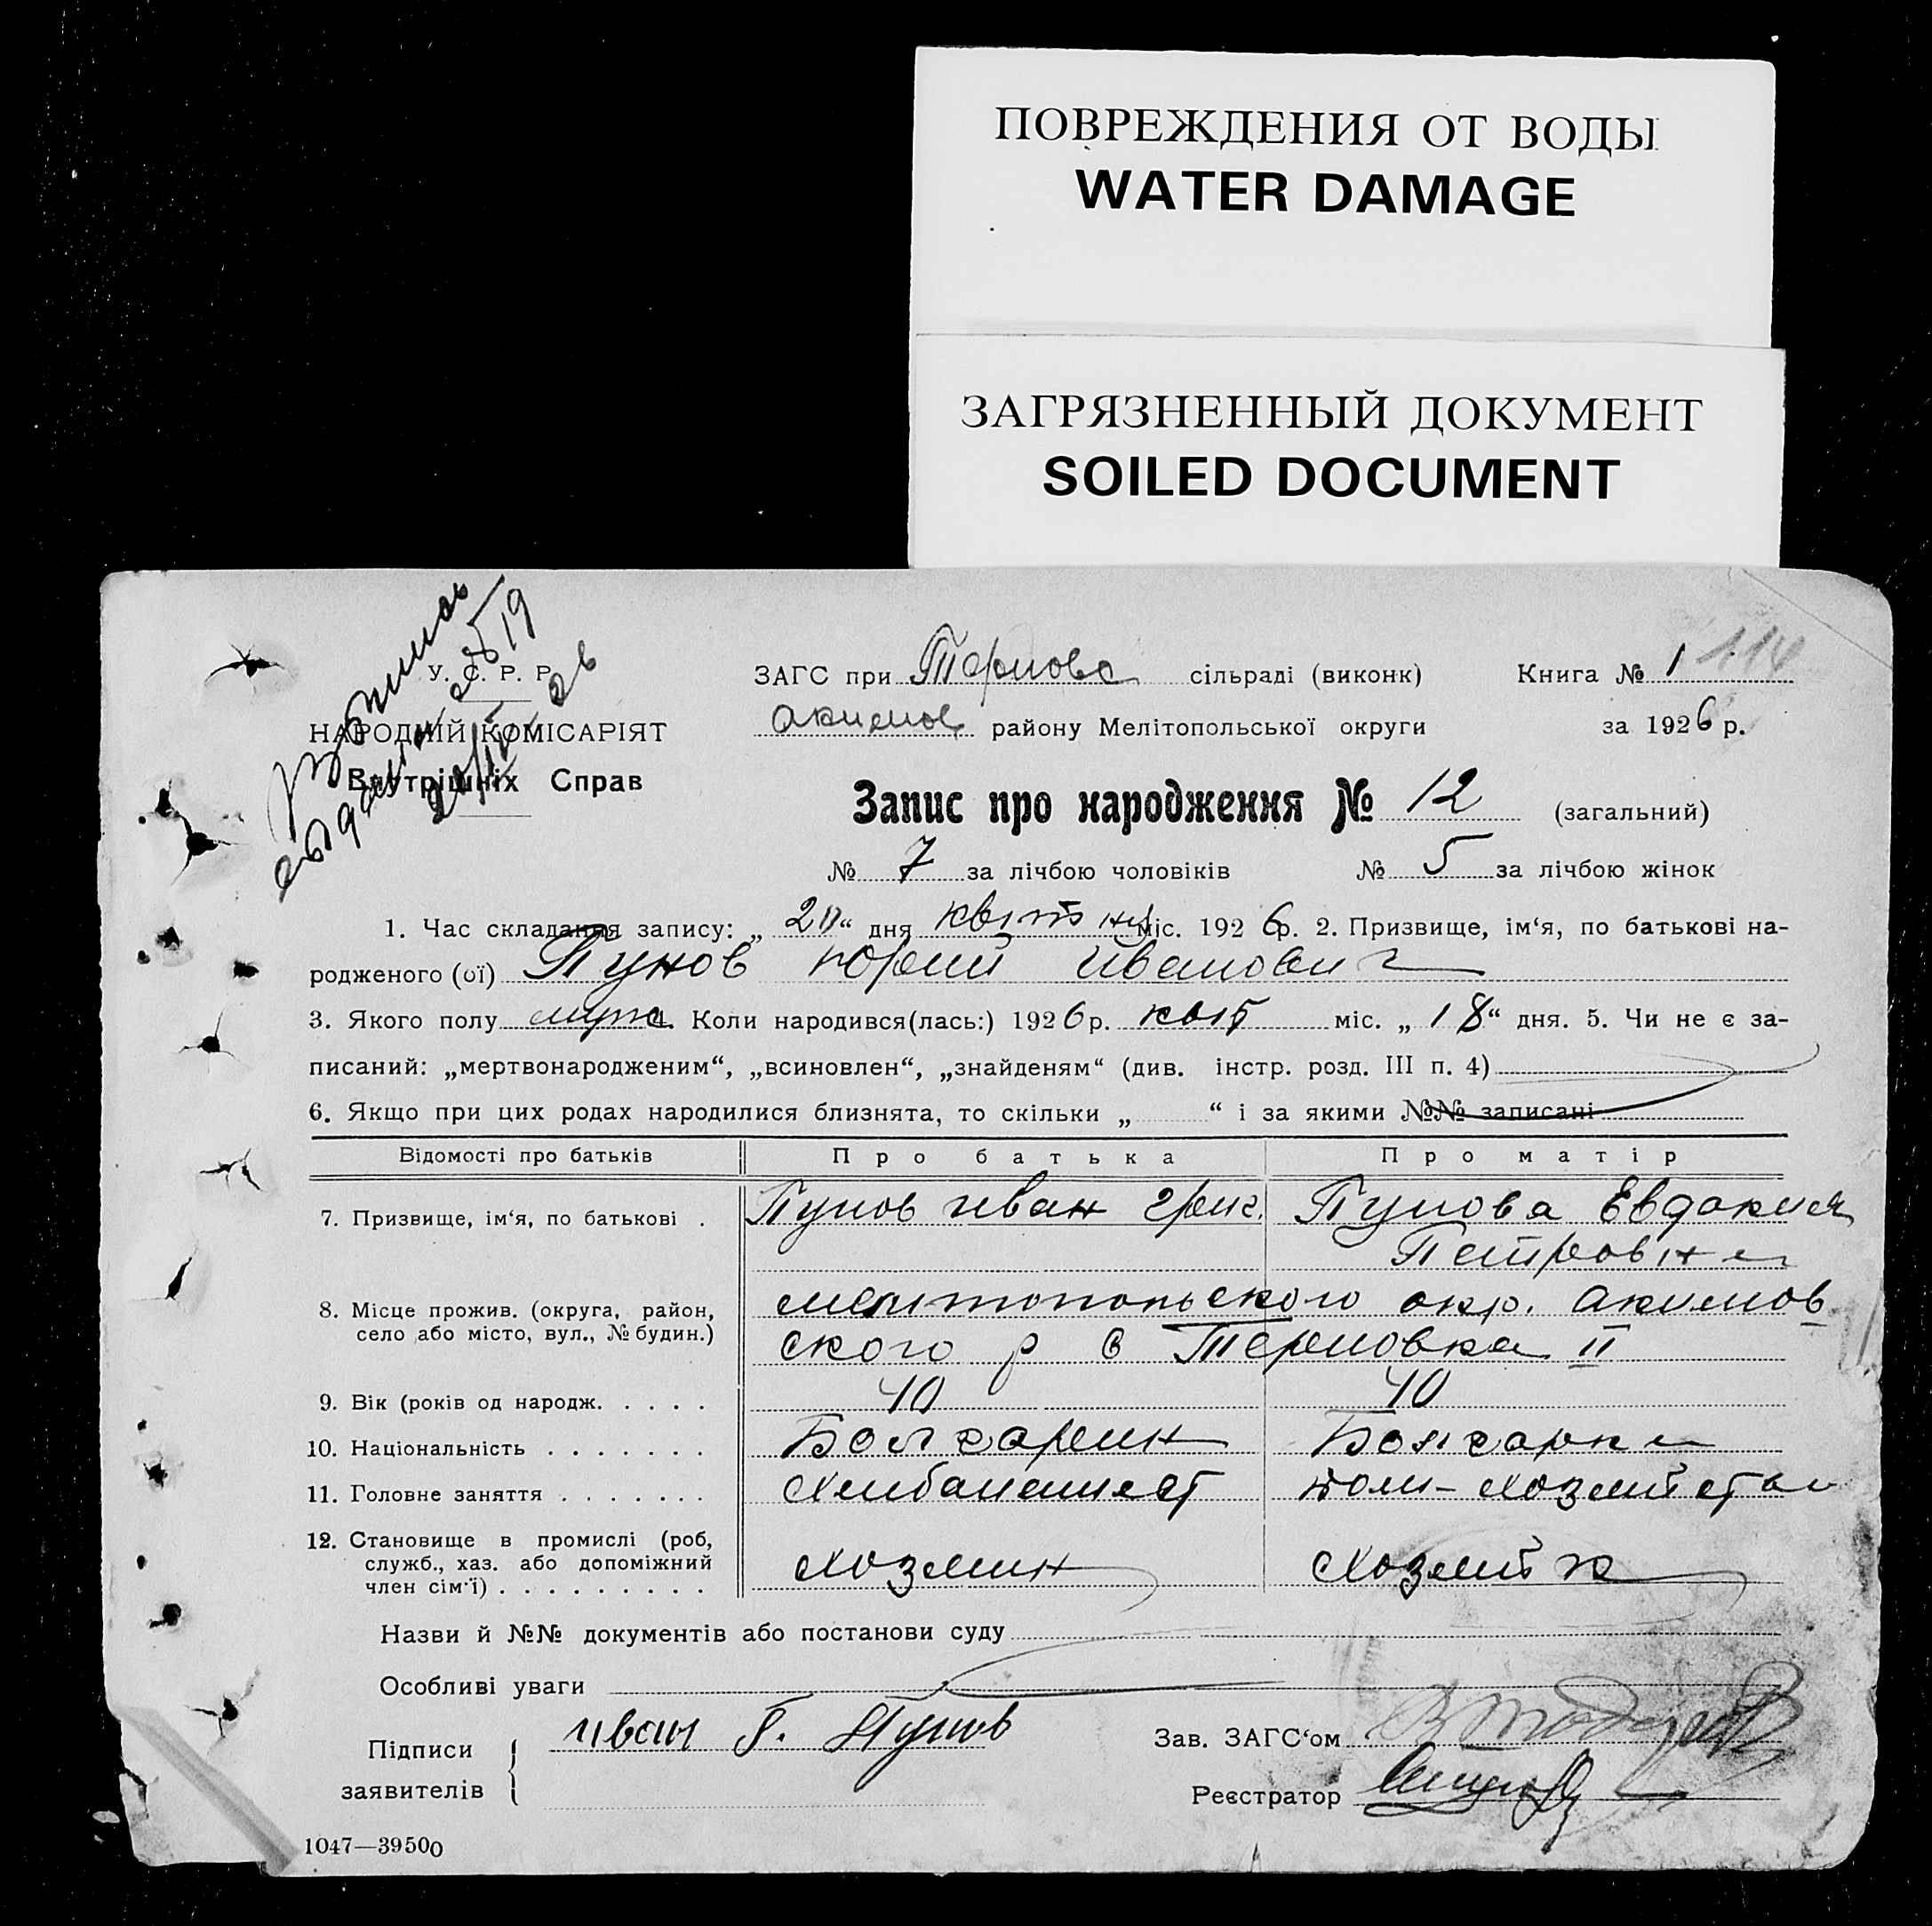 ПОВРЕЖДЕНИЯ ОТ ВОДЫ
WATER DAMAGE
ЗАГРЯЗНЕННЫЙ ДОКУМЕНТ
SOILED DOCUMENT
У. С. Р. Р.
НАРОДНІЙ КОМІСАРІЯТ
Внутрішніх Справ
ЗАГС при Терновс сільраді (виконк) Книга № 1 114
Акимов району Мелітопольської округи за 1926 р.
Запис про народження № 12 (загальний)
№ 7 за лічбою чоловіків № 5 за лічбою жінок
1. Час складання запису: „20“ дня квітня міс. 1926р. 2. Призвище, ім‘я, по батькові на-
родженого (ої) Пунов Юрий Иванович
3. Якого полу муж. 4. Коли народився(лась:) 1926р. квіт міс. „18“ дня. 5. Чи не є за-
писаний: „мертвонародженим“, „всиновлен“, „знайденям“ (див. інстр. розд. III п. 4)
6. Якщо при цих родах народилися близнята, то скільки „ “ і за якими №№ записані
Відомості про батьків Про батька Про матір
7. Призвище, ім‘я, по батькові . Пунов Иван Григ. Пунова Евдокия
Петровна
8. Місце прожив. (округа, район, село або місто, вул., № будин.) Мелитопольского окр. Акимов
ского р с Терновка II
9. Вік (років од народж. . . . . 40 40
10. Національність . . . . . . . Болгарин Болгарка
11. Головне заняття . . . . . . . Хлибопашест дом-хозяйства
12. Становище в промислі (роб,
служб., хаз. або допоміжний
член сім‘ї) . . . . . . . . . Хозяин Хозяйк
Назви й №№ документів або постанови суду
Особливі уваги
Підписи
заявителів
Иван Г. Пунов
Зав. ЗАГС‘ом
Реєстратор
1047—39500